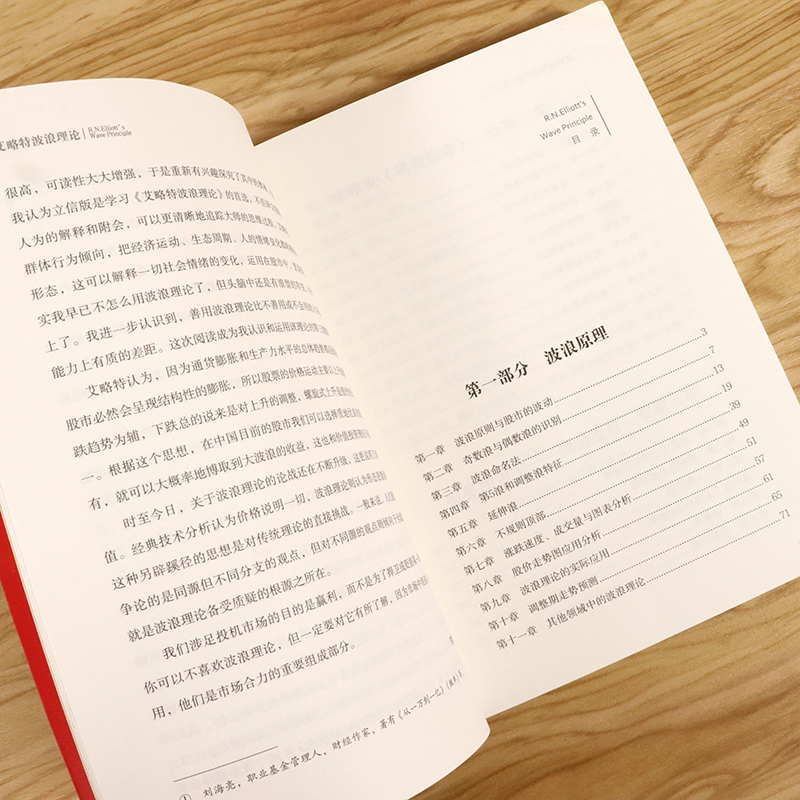 艾略特波浪理论 | R.N.Elliott's
Wave Principle
很高，可读性大大增强，于是重新有兴趣深究了其中的
我认为立信版是学习《艾略特波浪理论》的首选，不
人为的解释和附会，可以更清晰地追踪大师的思维过程，
群体行为倾向，把经济运动、生态周期、人的情绪变化
形态，这可以解释一切社会情绪的变化，运用在股市中，
实我早已不怎么用波浪理论了，但头脑中还是有
上了。我进一步认识到，善用波浪理论比不善用或不会
能力上有质的差距。这次阅读成为我认识和运用该理论的
艾略特认为，因为通货膨胀和生产力水平的总体趋势
股市必然会呈现结构性的膨胀，所以股票的价格运动主要以
跌趋势为辅，下跌总的说来是对上升的调整，螺旋式上升
一。根据这个思想，在中国目前的股市我们可以选择
有，就可以大概率地博取到大波浪的收益，这也和价值投资
时至今日，关于波浪理论的论战还在不断升级，这更说明
值。经典技术分析认为价格说明一切，波浪理论则认为形态
这种另辟蹊径的思想是对传统理论的直接挑战。一般来说，人
争论的是同源但不同分支的观点，但对不同源的观点则倾向于
就是波浪理论备受质疑的根源之所在。
我们涉足投机市场的目的是赢利，而不是为了捍卫或
你可以不喜欢波浪理论，但一定要对它有所了解，因为市场中
用，他们是市场合力的重要组成部分。
① 刘海亮，职业基金管理人，财经作家，著有《从一万到一亿》
R.N.Elliott's
Wave Principle
目 录
第一部分 波浪原理
第一章 波浪原则与股市的波动 3
第二章 奇数浪与偶数浪的识别 7
第三章 波浪命名法 13
第四章 第5浪和调整浪特征 19
第五章 延伸浪 39
第六章 不规则顶部 49
第七章 涨跌速度、成交量与图表分析 51
第八章 股价走势图应用分析 57
第九章 波浪理论的实际应用 61
第十章 调整期走势预测 65
第十一章 其他领域中的波浪理论 71